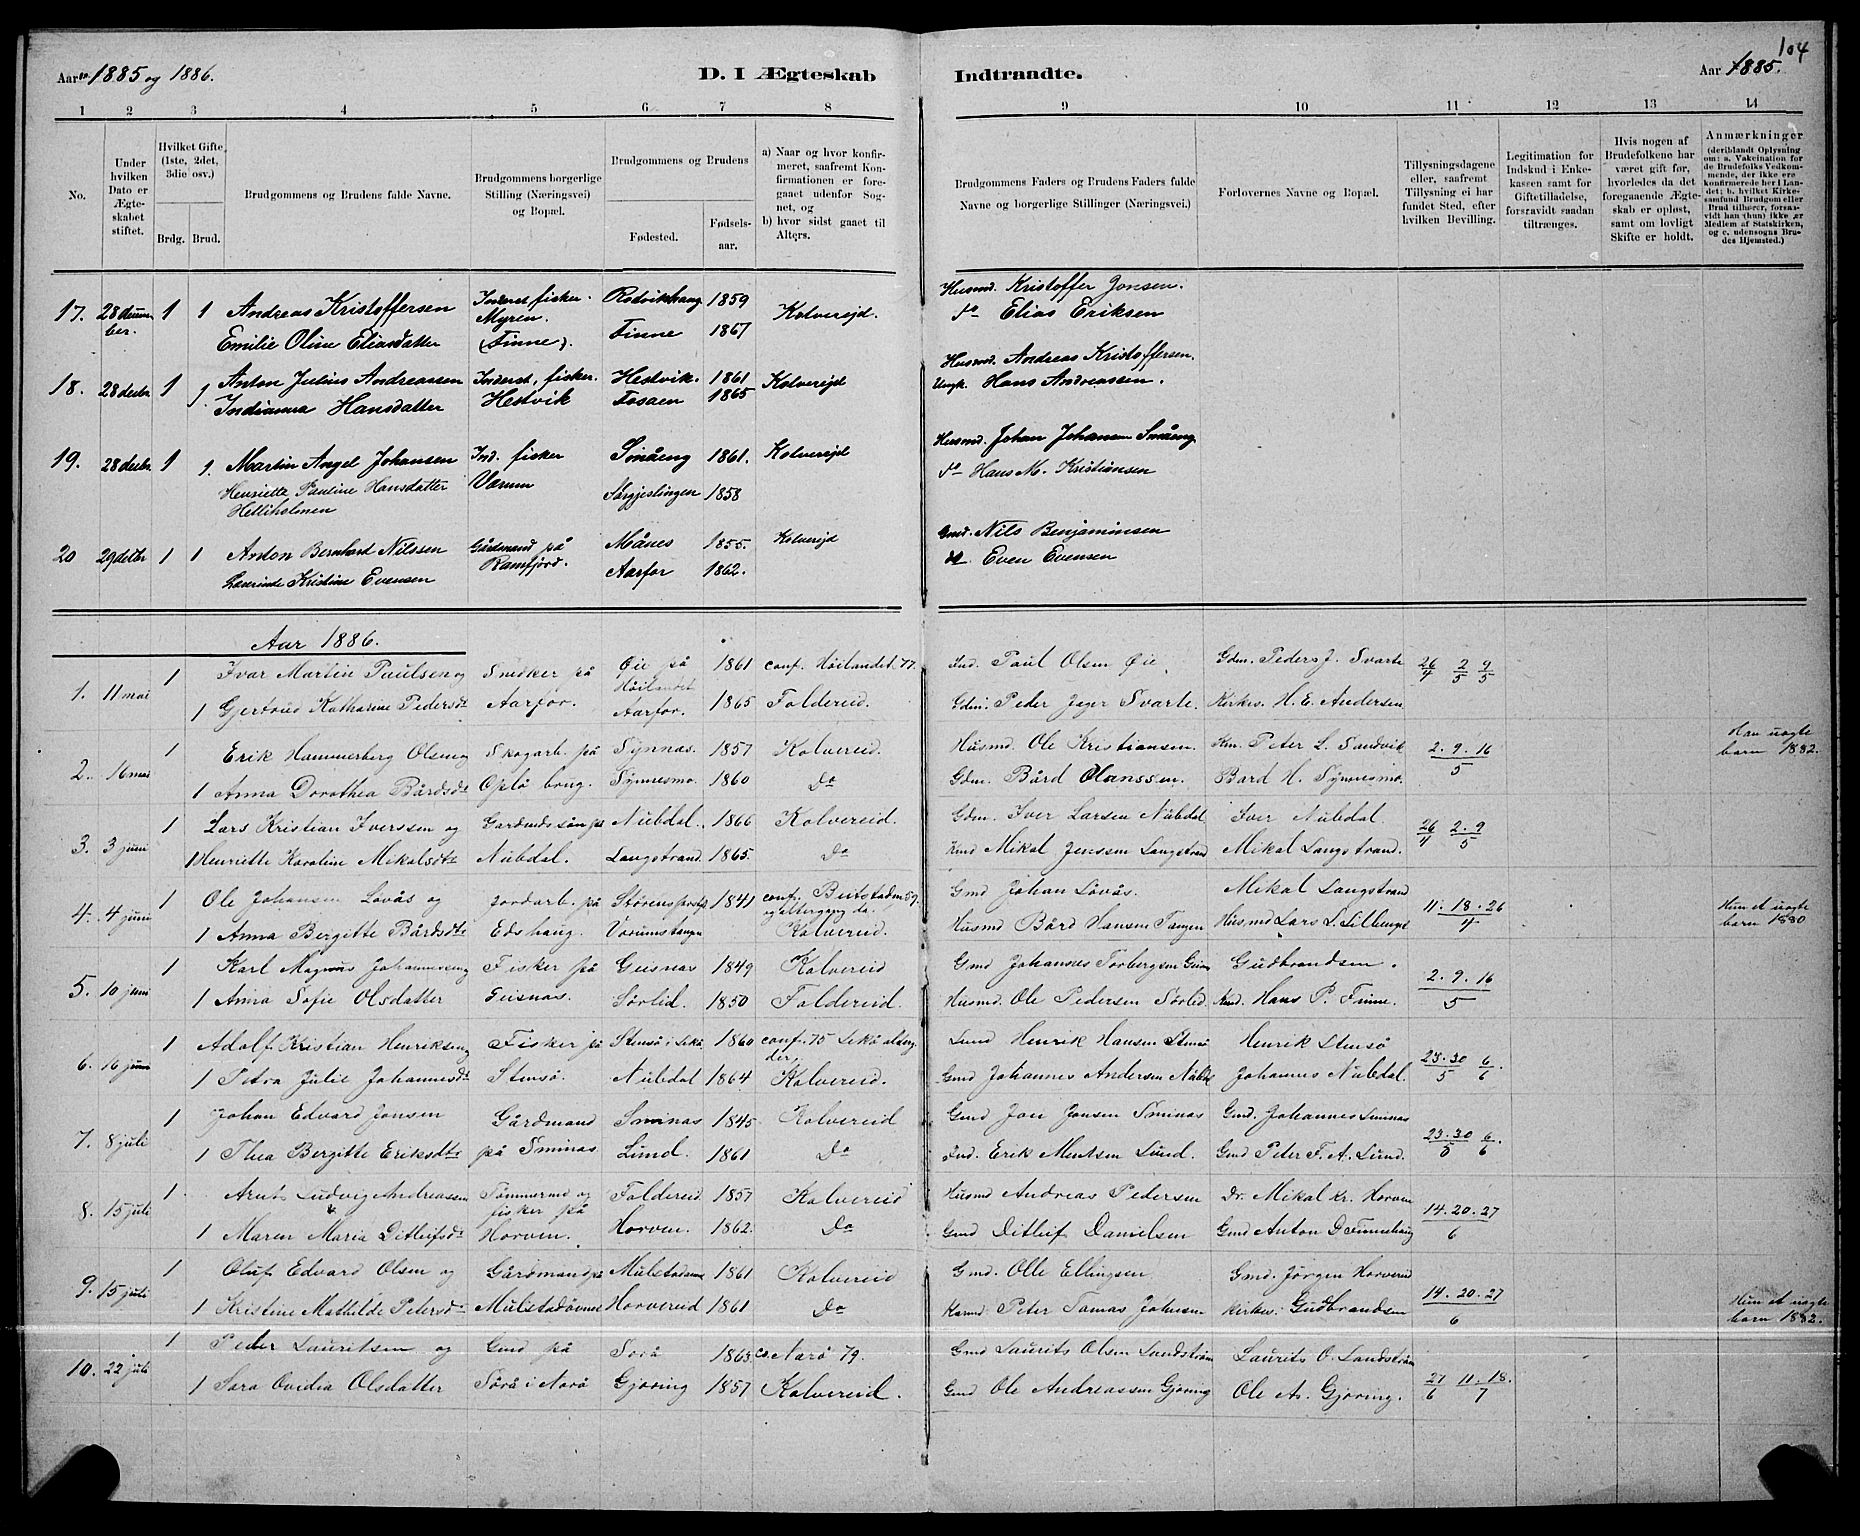 104
Aar 1885 og 1886.
D. I Ægteskab
Indtraadte.
Aar 1885.
1 2 3 4 5 6 7 8 9 10 11 12 13 14
No.
Under hvilken Dato er Ægteskabet stiftet.
Hvilket Gifte (1ste, 2det, 3die osv.)
Brdg. Brud.
Brudgommens og Brudens fulde Navne.
Brudgommens borgerlige Stilling (Næringsvei) og Bopæl.
Brudgommens og Brudens
Fødested.
Fødselsaar.
a) Naar og hvor konfirmeret, saafremt Konfirmationen er foregaaet udenfor Sognet, og
b) hvor sidst gaaet til Alters.
Brudgommens Faders og Brudens Faders fulde Navne og borgerlige Stillinger (Næringsvei.)
Forlovernes Navne og Bopæl.
Tillysningsdagene eller, saafremt Tillysning ei har fundet Sted, efter hvilken Bevilling.
Legitimation for Indskud i Enkekassen samt for Giftetilladelse, forsaavidt saadan tiltrænges.
Hvis nogen af Brudefolkene har været gift før, hvorledes da det foregaaende Ægteskab er opløst, samt om lovligt Skifte er holdt.
Anmærkninger (deriblandt Oplysning om: a. Vakcination for de Brudefolks Vedkommende, der ikke ere konfirmerede her i Landet; b. hvilket Kirkesamfund Brudgom eller Brud tilhører, forsaavidt han (hun) ikke er Medlem af Statskirken, og c. udensogns Brudes Hjemsted.)
17. 28 decem 1 1 Andreas Kristoffersen Inderst, fisker. 1859 Kolvereid. Husmd. Kristoffer Jonsen.
ber. Emilie Oline Eliasdatter Myren. (Finne). Finne 1867 do Elias Eriksen
18. 28 decbr 1 1. Anton Julius Andreassen Inderst, fisker. Hestvik. 1861 Kolvereid Husmd. Andreas Kristoffersen.
Indianna Hansdatter Hestvik Fosaen 1865 Ungk. Hans Andreassen.
19. 28 decbr 1 1. Martin Angel Johansen Ind. fisker Småeng 1861. Kolvereid Husmd. Johan Johansen Småeng
Henriette Pauline Hansdatter Værum Sørgjeslingen 1858 do Hans M. Kristiansen
Helliholmen
20 29 decbr 1 1 Anton Bernhard Nilssen Gårdmand på Månes 1855. Kolvereid Gmd. Nils Benjaminsen
Laurinde Kristine Evensen Ramfjord. Aarfor 1862. do. Even Evensen
Aar 1886.
1. 11 mai 1 Ivar Martin Paulsen og Snedker på Øie på Høilandet 1861 conf. Høilandet 77. Ind. Paul Olsen Øie, Gdm. Peder J. Svarte 26/4 2/5 9/5
1 Gjertrud Katharine Pedersdt Aarfor. Aarfor. 1865 Foldereid. Gdm. Peder Jager Svarte. Kirkes. H. E. Andersen
2. 16 mai 1 Erik Hammerberg Olsen og Skogarb. på Synnas. 1857 Kolvereid. Husmd. Ole Kristiansen. Peter L. Sandvik 2. 9. 16 / 5 Han uægte barn 1882.
1 Anna Dorothea Bårdsdt Oplø brug. Synnesmo. 1860 Do Gdm. Bård Hanssen. Bard H. Synnesmo.
3. 3 juni 1 Lars Kristian Iverssen og Gardmdssøn på Nubdal. 1866 Kolvereid. Gdm. Iver Larsen Nubdal Iver Nubdal 26/4 2. 9 / 5
1 Henriette Karoline Mikalsdtr Nubdal. Langstrand. 1865. Do Mikal Jenssen Langstrand Mikal Langstrand.
4. 4 juni 1 Ole Johansen Løvås og Jordarb. på 1841 conf. Beitstaden 59. Gmd Johan Løvås. Mikal Langstrand 11. 18. 26 / 4 Hun et uægte barn 1880
1 Anna Bergitte Bårdsdtr Edshaug. Værumstangen Kolvereid. Husmd Bård Hansen Tangen Husmd Lars L.
5. 10 juni 1 Karl Magnus Johannessen og Fisker på Geisnas 1849 Kolvereid Gmd Johannes Torbergsen Gudbrandsen. 2. 9. 16 / 5
1 Anna Sofie Olsdatter Geisnas. Sørlid. 1850 Foldereid. Husmd. Ole Pedersen Sørlid. Hans P. Finne.
6. 16 juni 1 Adolf Kristian Henriksen og Fisker på Stensø i Lekø 1860 conf. 75 Lekø Henrik Hansen Stensø Henrik Stensø 23. 30 / 5 6/6
1 Petra Julie Johannesdt Stensø. Nubdal 1864 Kolvereid. Gmd Johannes Andersen Nubdal Johannes Nubdal.
7. 8 juli 1 Johan Edvard Jonsen Gårdmand Sminas 1845. Kolvereid Gmd Jon Jonsen Sminas Gmd. Johannes Sminas 23. 30 / 5 6/6.
1 Thea Bergitte Eriksdtr på Sminas Lund. 1861 Do Ind. Erik Mentsen Lund. Gmd Peter F. A. Lund.
8. 15 juli 1. Arnt Ludvig Andreassen Tømmermd og fisker på Foldereid. 1857 Kolvereid Husmd Andreas Pedersen Dr. Mikal Kr. Horven 14. 20. 27 / 6
1 Maren Maria Ditlefsdt Horven. Horven. 1862. Do Gmd Ditlef Danielsen Gmd Anton D. Finnehaug
9. 15 juli 1 Oluf Edvard Olsen og Gårdmand på 1861 Kolvereid Gmd. Olle Ellingsen Gmd. Jørgen Horvereid 14. 20. 27 / 6 Hun et uægte barn 1882.
1 Kristine Mathilde Petersdt Horvereid 1861 Do Peter Tomas Johnsen Kirkes. Gudbrandsen
10. 22 juli 1 Peder Lauritsen og Gmd på Sørå 1863. co. Nærø 79. Gmd Laurits Olsen Landstrøm Laurits O. Landstrøm 27/6 11. 18. / 7
1 Sara Ovidia Olsdatter Sørå i Nærø Gjøring 1857 Kolvereid. Gmd Ole Andreassen Gjøring Ole A. Gjøring.